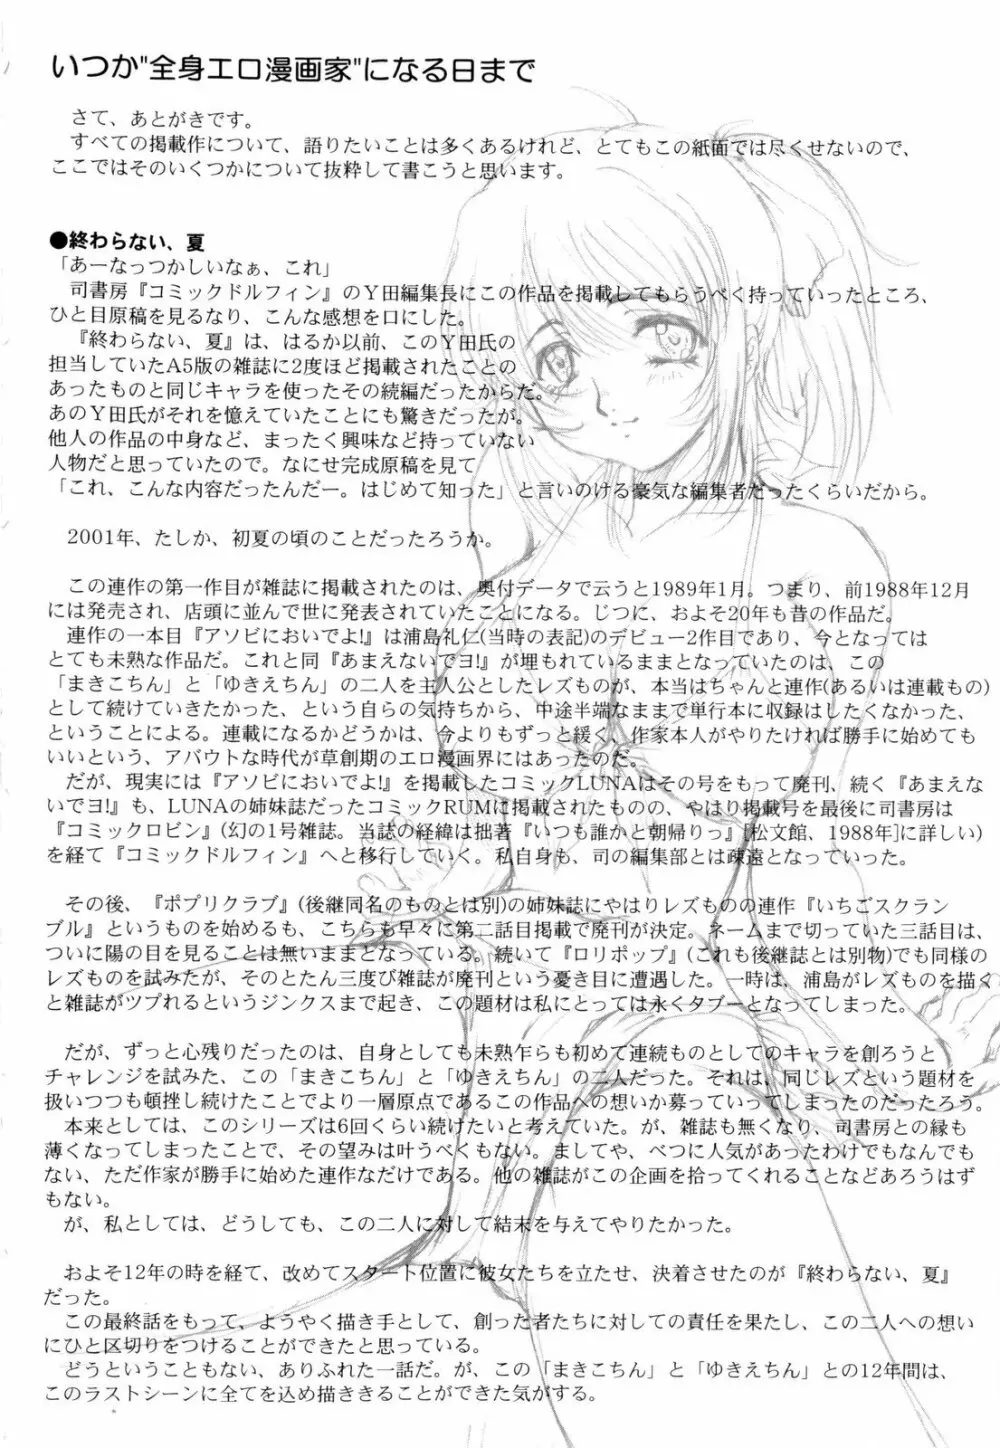 いつか"全身エロ漫画家"になる日まで
さて、あとがきです。
すべての掲載作について、語りたいことは多くあるけれど、とてもこの紙面では尽くせないので、
ここではそのいくつかについて抜粋して書こうと思います。
●終わらない、夏
「あーなっつかしいなぁ、これ」
司書房『コミックドルフィン』のY田編集長にこの作品を掲載してもらうべく持っていったところ、
ひと目原稿を見るなり、こんな感想を口にした。
『終わらない、夏』は、はるか以前、このY田氏の
担当していたA5版の雑誌に2度ほど掲載されたことの
あったものと同じキャラを使ったその続編だったからだ。
あのY田氏がそれを憶えていたことにも驚きだったが。
他人の作品の中身など、まったく興味など持っていない
人物だと思っていたので。なにせ完成原稿を見て
「これ、こんな内容だったんだー。はじめて知った」と言いのける豪気な編集者だったくらいだから。
2001年、たしか、初夏の頃のことだったろうか。
この連作の第一作目が雑誌に掲載されたのは、奥付データで云うと1989年1月。つまり、前1988年12月
には発売され、店頭に並んで世に発表されていたことになる。じつに、およそ20年も昔の作品だ。
連作の一本目『アソビにおいでよ!』は浦島礼仁(当時の表記)のデビュー2作目であり、今となっては
とても未熟な作品だ。これと同『あまえないでヨ!』が埋もれているままとなっていたのは、この
「まきこちん」と「ゆきえちん」の二人を主人公としたレズものが、本当はちゃんと連作(あるいは連載もの)
として続けていきたかった、という自らの気持ちから、中途半端なままで単行本に収録はしたくなかった、
ということによる。連載になるかどうかは、今よりもずっと緩く、作家本人がやりたければ勝手に始めても
いいという、アバウトな時代が草創期のエロ漫画界にはあったのだ。
だが、現実には『アソビにおいでよ!』を掲載したコミックLUNAはその号をもって廃刊、続く『あまえな
いでヨ!』も、LUNAの姉妹誌だったコミックRUMに掲載されたものの、やはり掲載号を最後に司書房は
『コミックロビン』(幻の1号雑誌。当誌の経緯は拙著『いつも誰かと朝帰りっ』[松文館、1988年]に詳しい)
を経て『コミックドルフィン』へと移行していく。私自身も、司の編集部とは疎遠となっていった。
その後、『ポプリクラブ』(後継同名のものとは別)の姉妹誌にやはりレズものの連作『いちごスクラン
ブル』というものを始めるも、こちらも早々に第二話目掲載で廃刊が決定。ネームまで切っていた三話目は、
ついに陽の目を見ることは無いままとなっている。続いて『ロリポップ』(これも後継誌とは別物)でも同様の
レズものを試みたが、そのとたん三度び雑誌が廃刊という憂き目に遭遇した。一時は、浦島がレズものを描く
と雑誌がツブれるというジンクスまで起き、この題材は私にとっては永くタブーとなってしまった。
だが、ずっと心残りだったのは、自身としても未熟乍らも初めて連続ものとしてのキャラを創ろうと
チャレンジを試みた、この「まきこちん」と「ゆきえちん」の二人だった。それは、同じレズという題材を
扱いつつも頓挫し続けたことでより一層原点であるこの作品への想いか募っていってしまったのだったろう。
本来としては、このシリーズは6回くらい続けたいと考えていた。が、雑誌も無くなり、司書房との縁も
薄くなってしまったことで、その望みは叶うべくもない。ましてや、べつに人気があったわけでもなんでも
ない、ただ作家が勝手に始めた連作なだけである。他の雑誌がこの企画を拾ってくれることなどあろうはず
もない。
が、私としては、どうしても、この二人に対して結末を与えてやりたかった。
およそ12年の時を経て、改めてスタート位置に彼女たちを立たせ、決着させたのが『終わらない、夏』
だった。
この最終話をもって、ようやく描き手として、創った者たちに対しての責任を果たし、この二人への想い
にひと区切りをつけることができたと思っている。
どうということもない、ありふれた一話だ。が、この「まきこちん」と「ゆきえちん」との12年間は、
このラストシーンに全てを込め描ききることができた気がする。